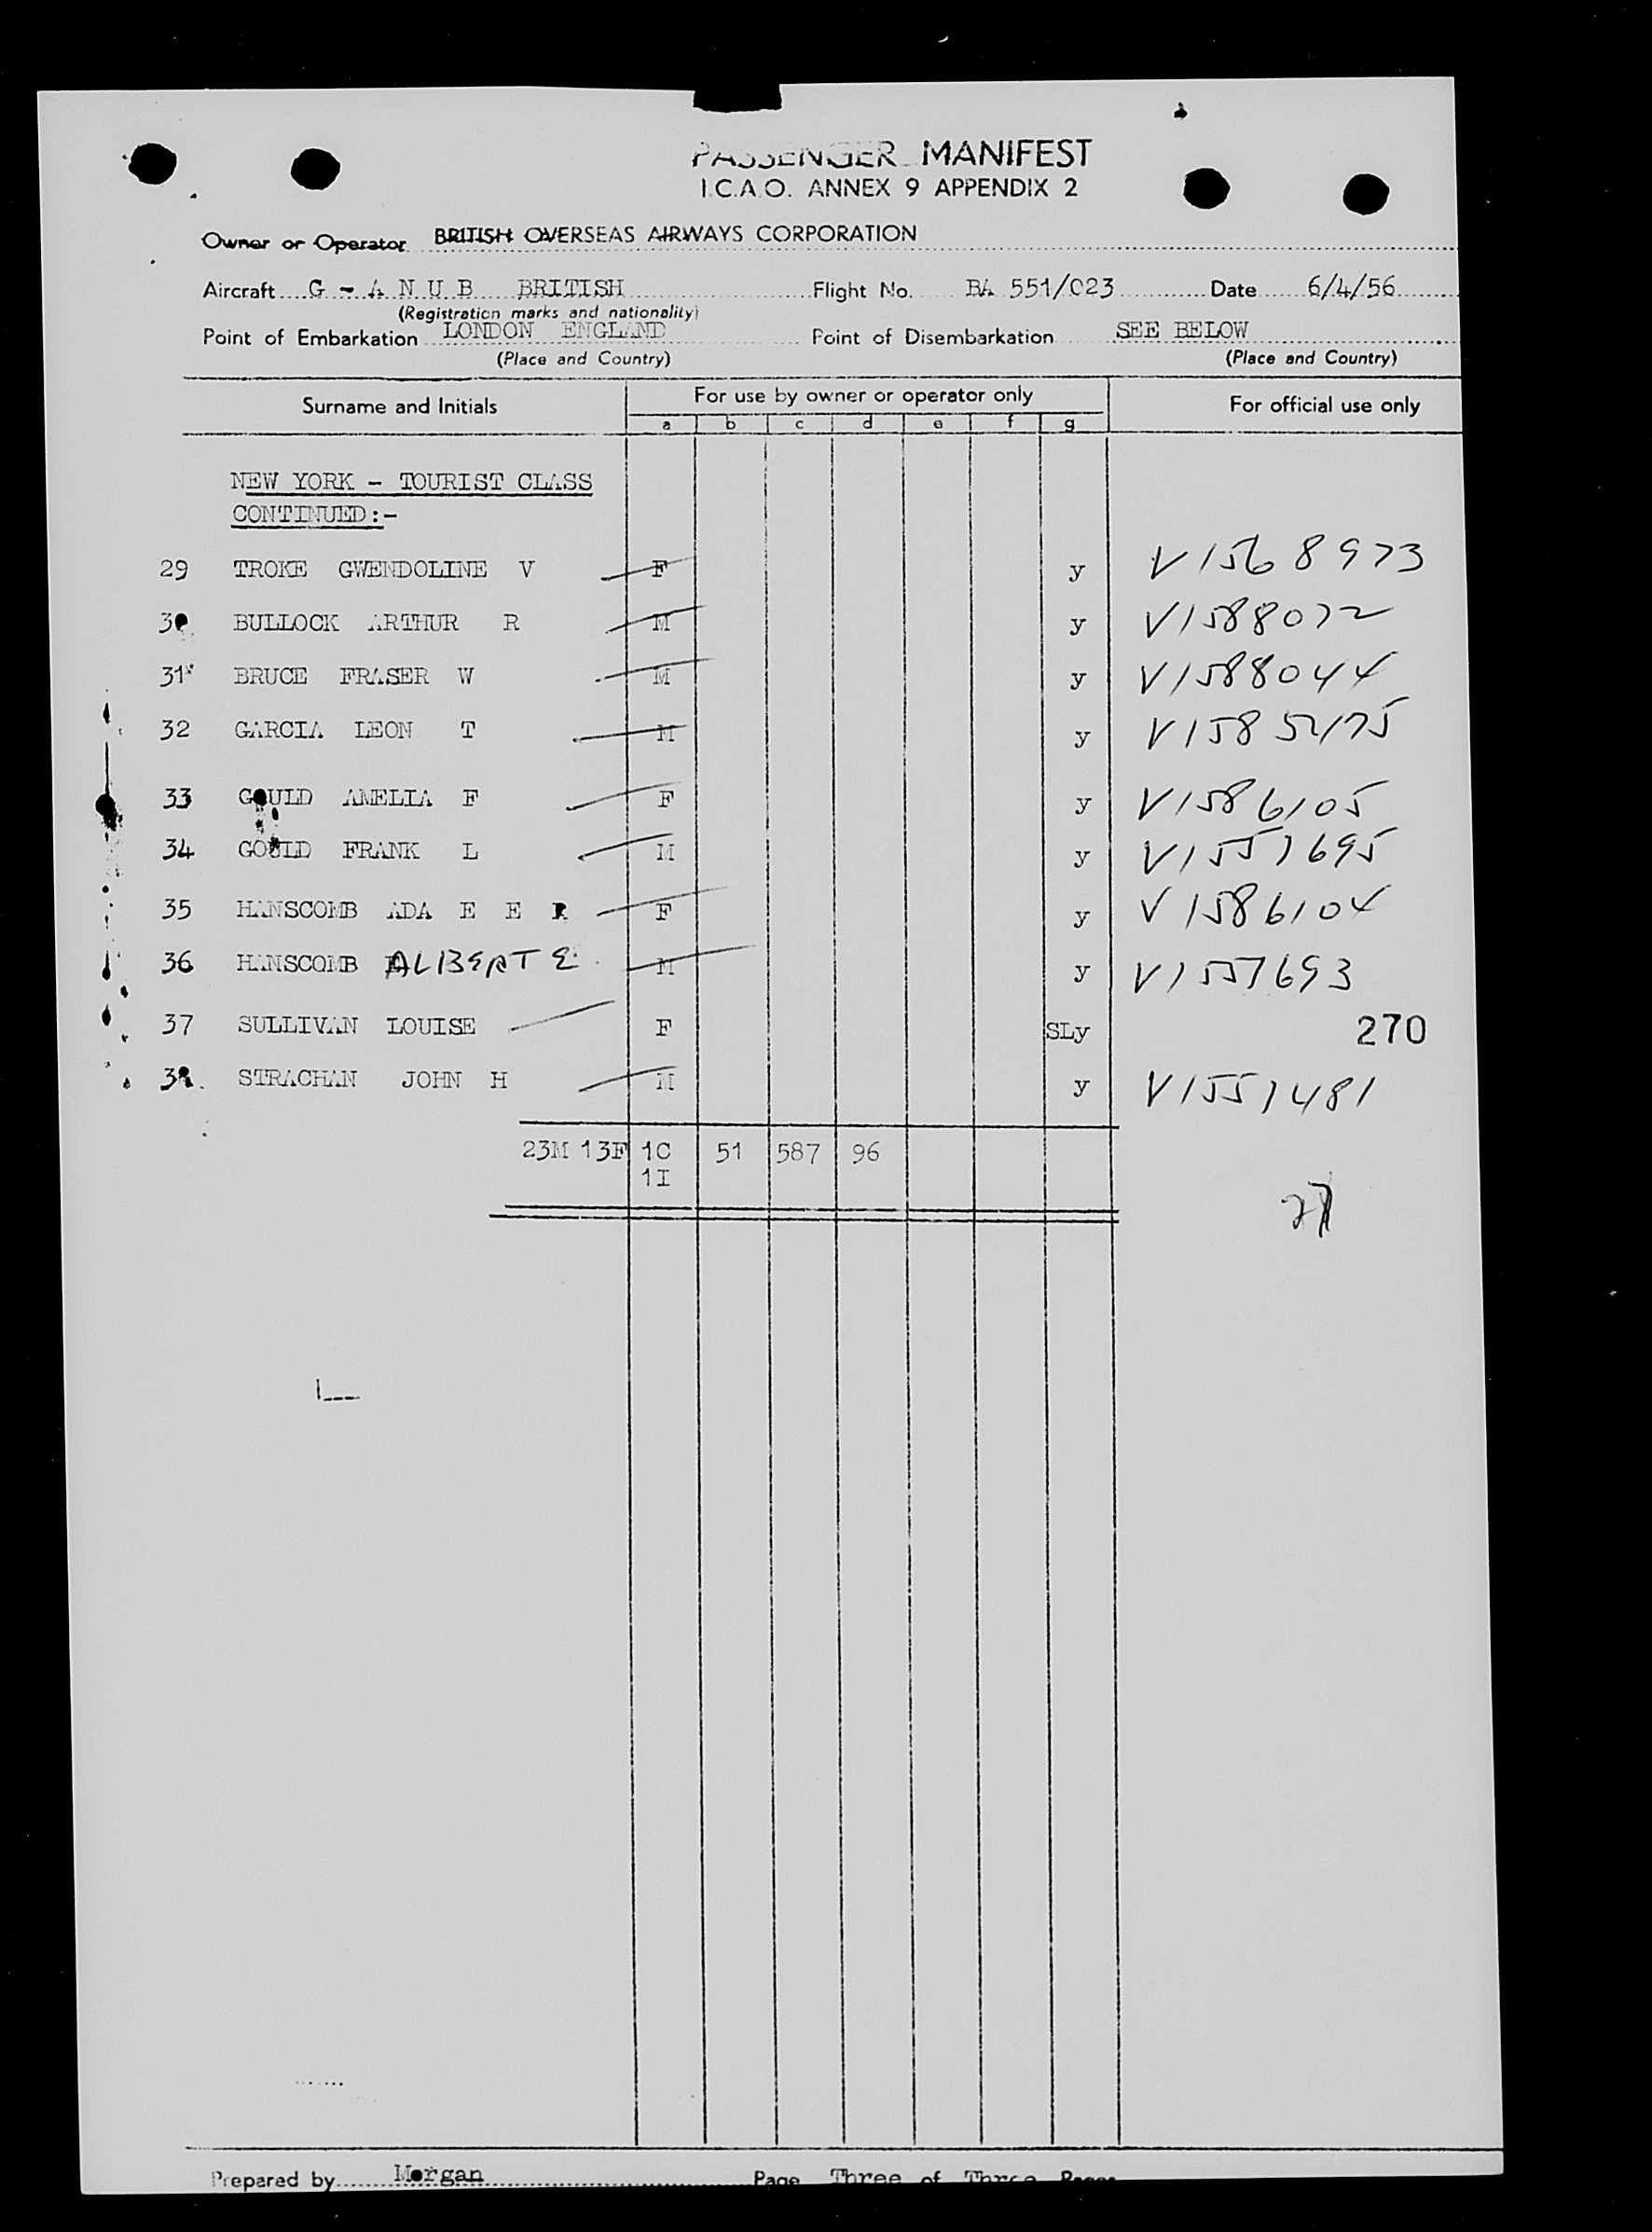 PASSENGER MANIFEST
I.C.A.O. ANNEX 9 APPENDIX 2
Owner or Operator BRITISH OVERSEAS AIRWAYS CORPORATION
Aircraft G - A N U B BRITISH Flight No. BA 551/023 Date 6/4/56
(Registration marks and nationality)
Point of Embarkation LONDON ENGLAND Point of Disembarkation SEE BELOW
(Place and Country) (Place and Country)
Surname and Initials For use by owner or operator only For official use only
a b c d e f g
NEW YORK - TOURIST CLASS
CONTINUED:-
29 TROKE GWENDOLINE V F y V1568973
30 BULLOCK ARTHUR R M y V1588072
31 BRUCE FRASER W M y V1588044
32 GARCIA LEON T M y
33 GOULD AMELIA F F y V1586105
34 GOULD FRANK L M y V1557695
35 HANSCOMB ADA E E R F y V1586104
36 HANSCOMB ALBERT E M y V1557693
37 SULLIVAN LOUISE F SLy 270
38. STRACHAN JOHN H M y V1557481
23M 13F 1C 51 587 96
1I
Prepared by Morgan Page Three of Three Pages